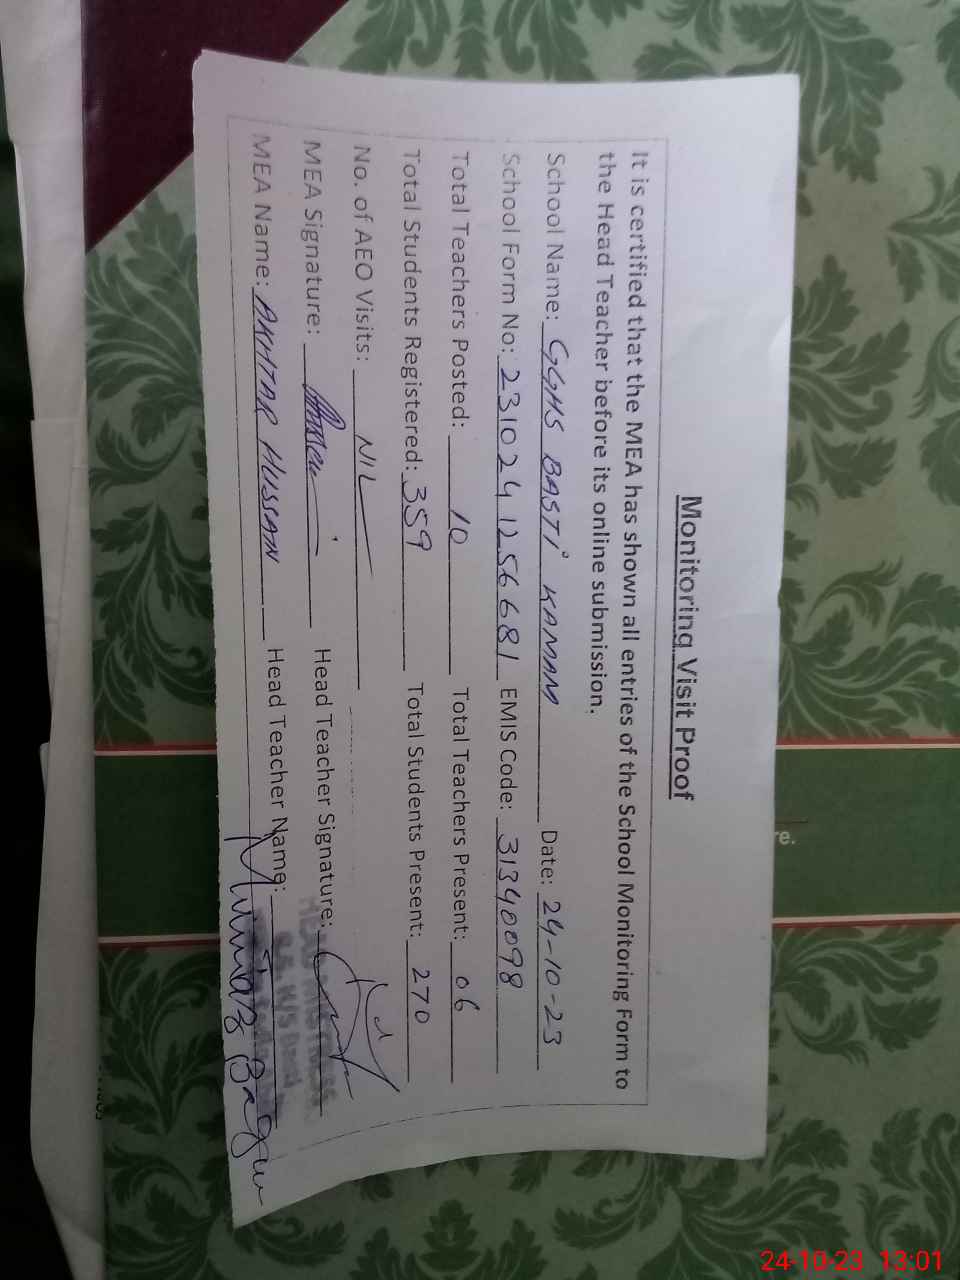 Monitoring Visit Proof
It is certified that the MEA has shown all entries of the School Monitoring Form to
the Head Teacher before its online submission.
School Name: GGHS BASTI KAMAM Date: 24-10-23
School Form No: 23102412566 81 EMIS Code: 31340098
Total Teachers Posted: 10 Total Teachers Present: 06
Total Students Registered: 359 Total Students Present: 270
No. of AEO Visits: NIL
MEA Signature: Head Teacher Signature:
HEADMISTRESS
MEA Name: AKHTAR HUSSAIN Head Teacher Name: Mumtaz Begum
re:
24-10-23 13:01